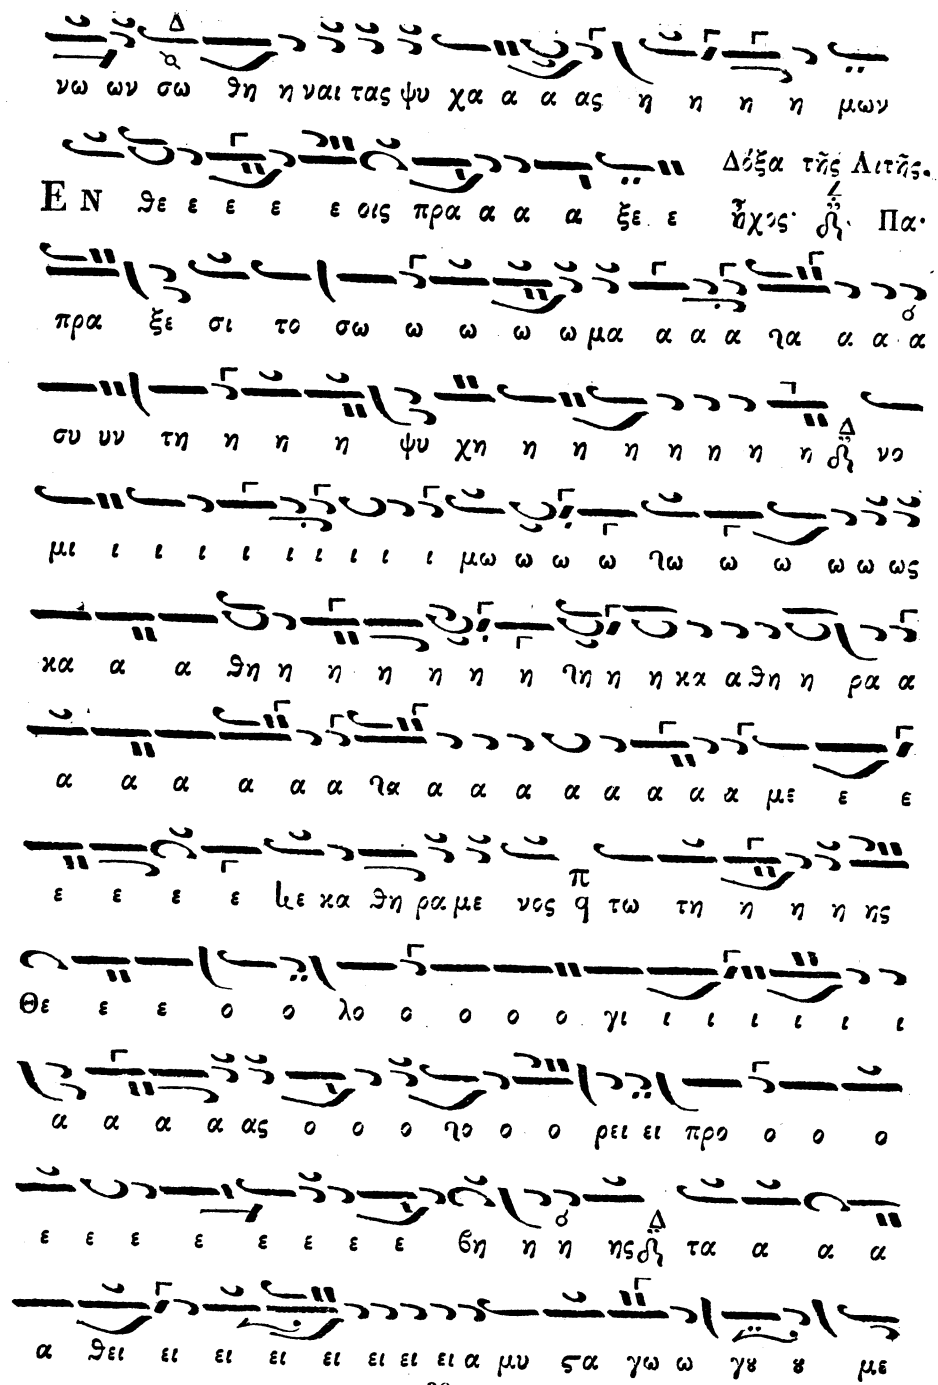 νω ων σω θη η ναι τας ψυ χα α α ας η η η η μων
Δόξα τῆς Λιτῆς.
ΕΝ θε ε ε ε ε οις πρα α α α ξε ε ἦχος Πα·
πρα ξε σι το σω ω ω ω ω μα α α α γα α α α
συ υν τη η η η ψυ χη η η η η η η η Δ νο
μι ι ι ι ι ι ι ι ι μω ω ω ω γω ω ω ω ω ως
κα α α θη η η η η η η γη η η κα α θη η ρα α
α α α α α α γα α α α α α α α α με ε ε
ε ε ε ε με κα θη ρα με νος π q τω τη η η η ης
Θε ε ε ο ο λο ο ο ο ο γι ι ι ι ι ι ι
α α α α ας ο ο ο γο ο ο ρει ει προ ο ο ο
ε ε ε ε ε ε ε ε βη η η ης Δ τα α α α
α θει ει ει ει ει ει ει ει α μυ ςα γω ω γȣ ȣ με